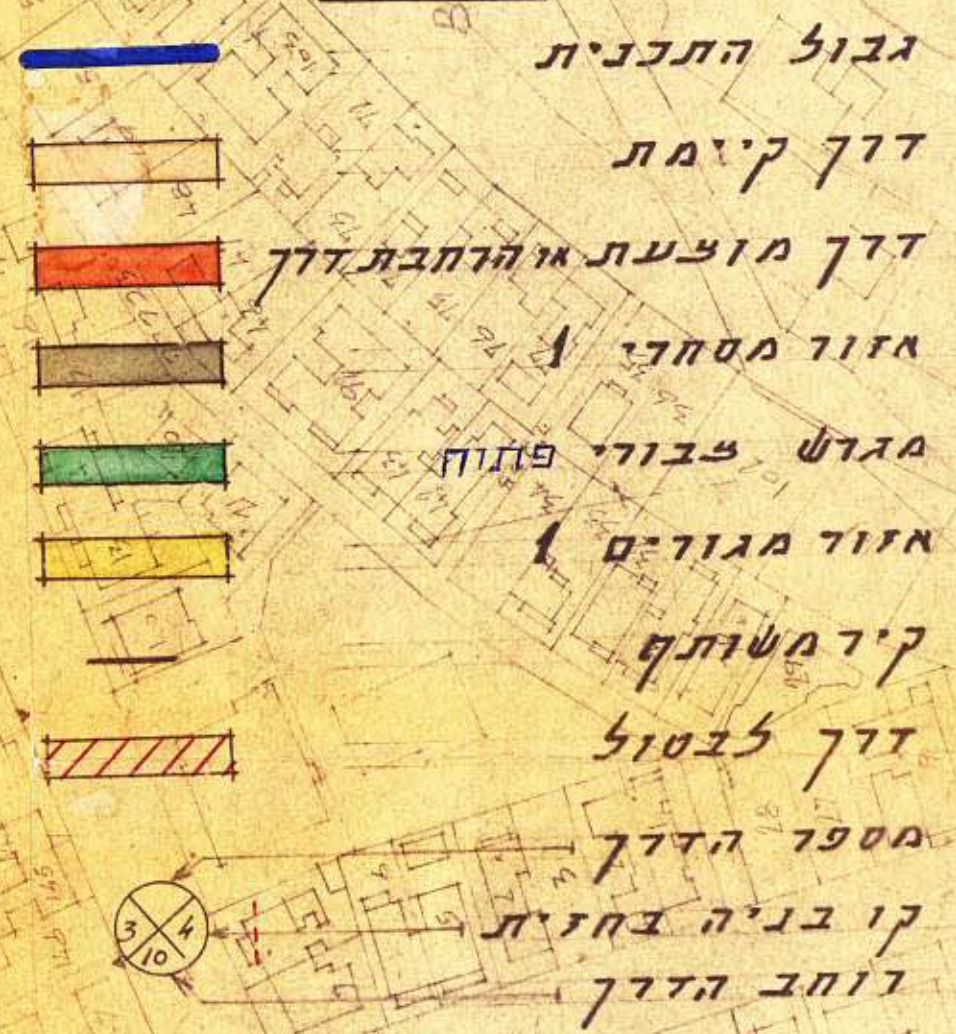 גבול התכנית
דרך קיימת
דרך מוצעת או הרחבת דרך
אזור מסחרי 1
מגרש צבורי פתוח
אזור מגורים 1
קיר משותף
דרך לבטול
מספר הדרך
קו בניה בחזית
רוחב הדרך
3 4
10